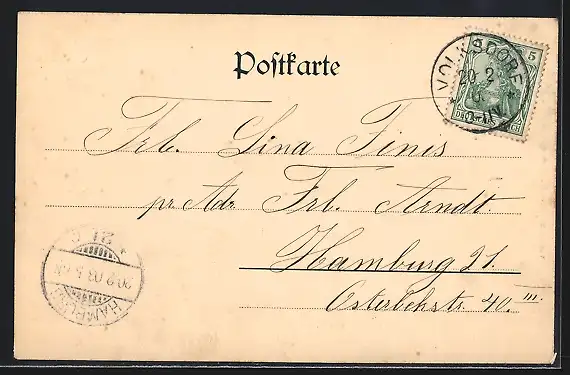 Postkarte
VOLKSDORF
20 2
5
DEUTSCHES REICH
Frl. Lina Finis
pr Adr. Frl. Arndt.
Hamburg 21.
Osterbekstr. 40. III.
20.2.03.
HAMBURG